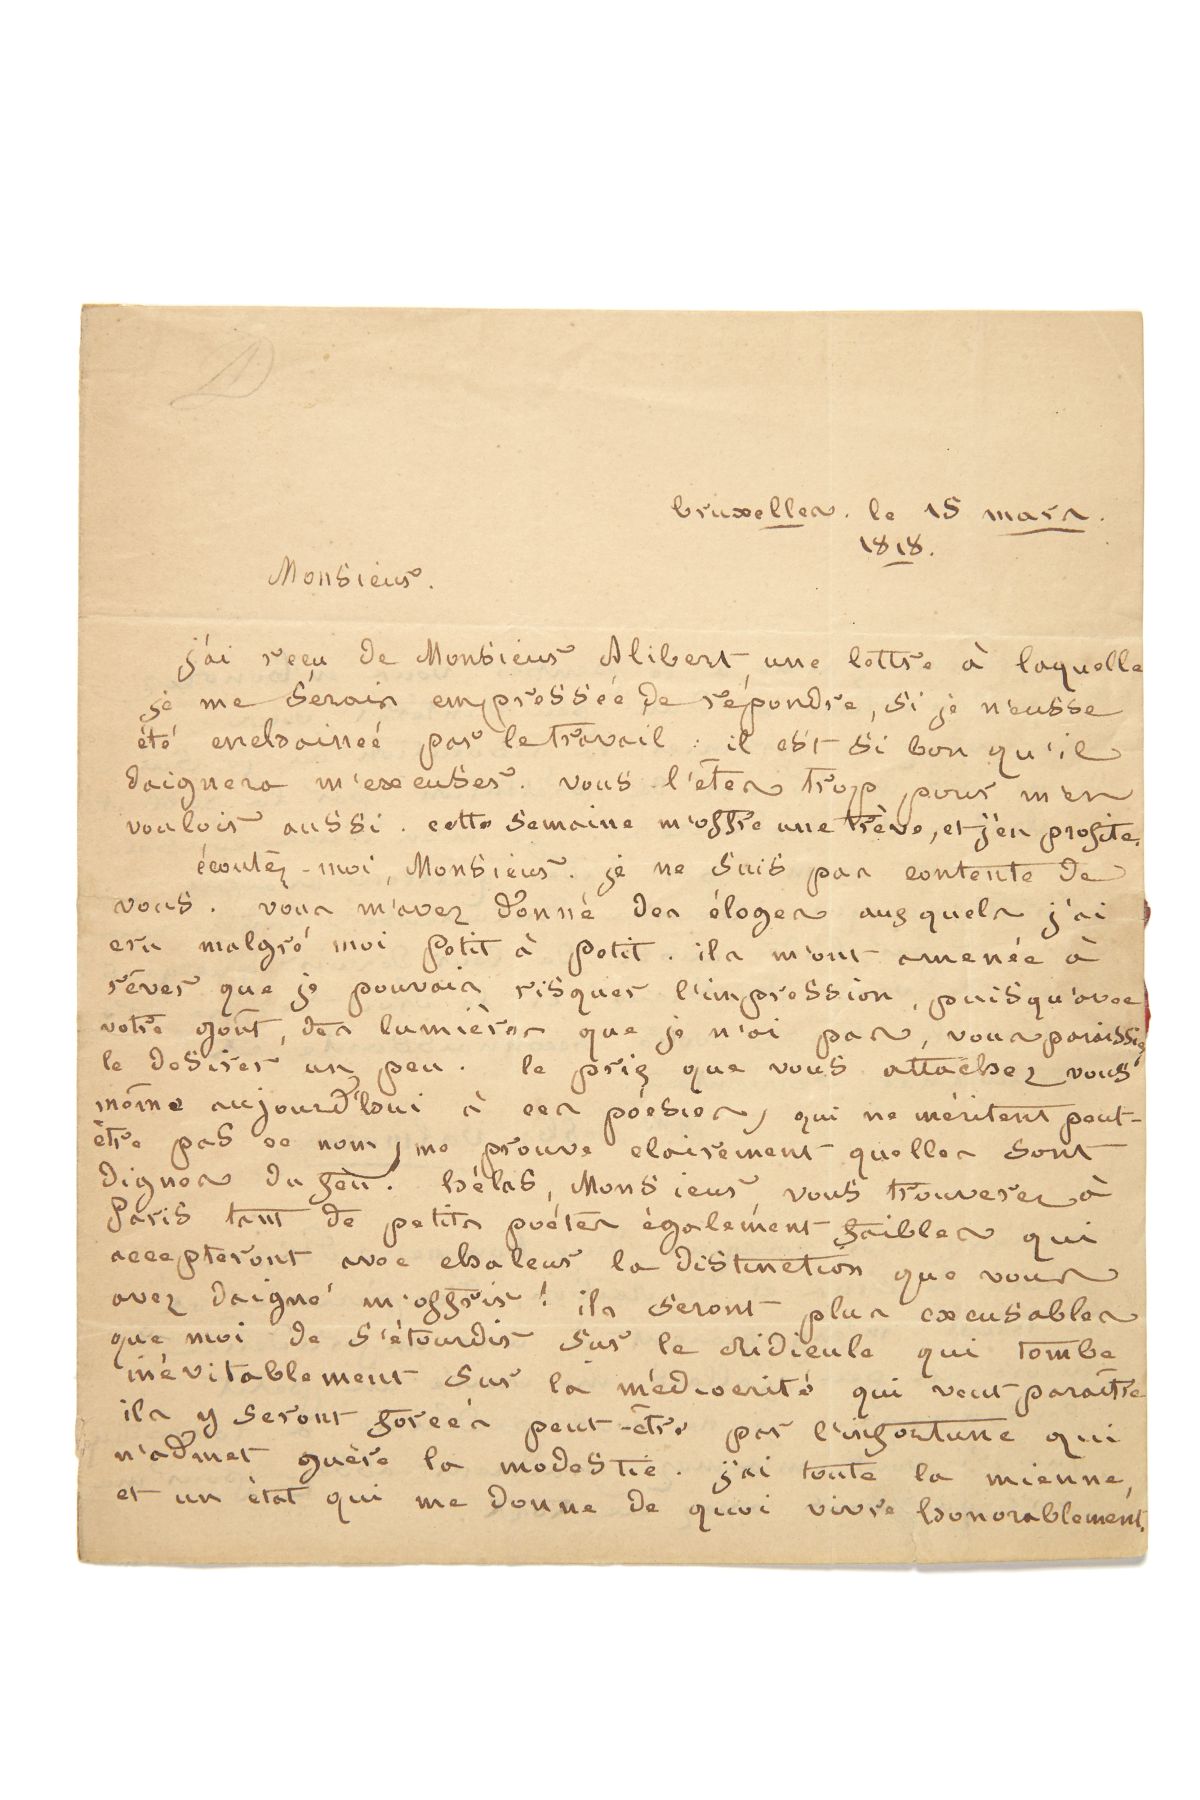 bruxelles. le 15 mars.
1818.
Monsieur.
j'ai reçu de Monsieur Alibert une lettre à laquelle
je me serais empressée de répondre, si je n'eusse
été enchainée par le travail : il est si bon qu'il
daignera m'excuser. vous l'êtes trop pour m'en
vouloir aussi. cette semaine m'offre une trève, et j'en profite.
écoutéz-moi, Monsieur. je ne suis pas contente de
vous. vous m'avez donné des éloges auxquels j'ai
cru malgré moi petit à petit. ils m'ont amenée à
rêver que je pouvais risquer l'impression, puisqu'avec
votre goût, des lumières que je n'ai pas, vous paraissiez
le desirer un peu. le prix que vous attachez vous
même aujourd'hui à ces poésies, qui ne méritent peut-
être pas ce nom, me prouve clairement quelles sont
dignes du feu. hélas, Monsieur, vous trouverez à
Paris tant de petits poétes également faibles qui
accepteront avec chaleur la distinction que vous
avez daigné m'offrir ! ils seront plus excusables
que moi de s'étourdir sur le ridicule qui tombe
inévitablement sur la médiocrité qui veut paraître
ils y seront forcés peut-être par l'infortune qui
n'admet guère la modestie. j'ai toute la mienne,
et un état qui me donne de quoi vivre honorablement.